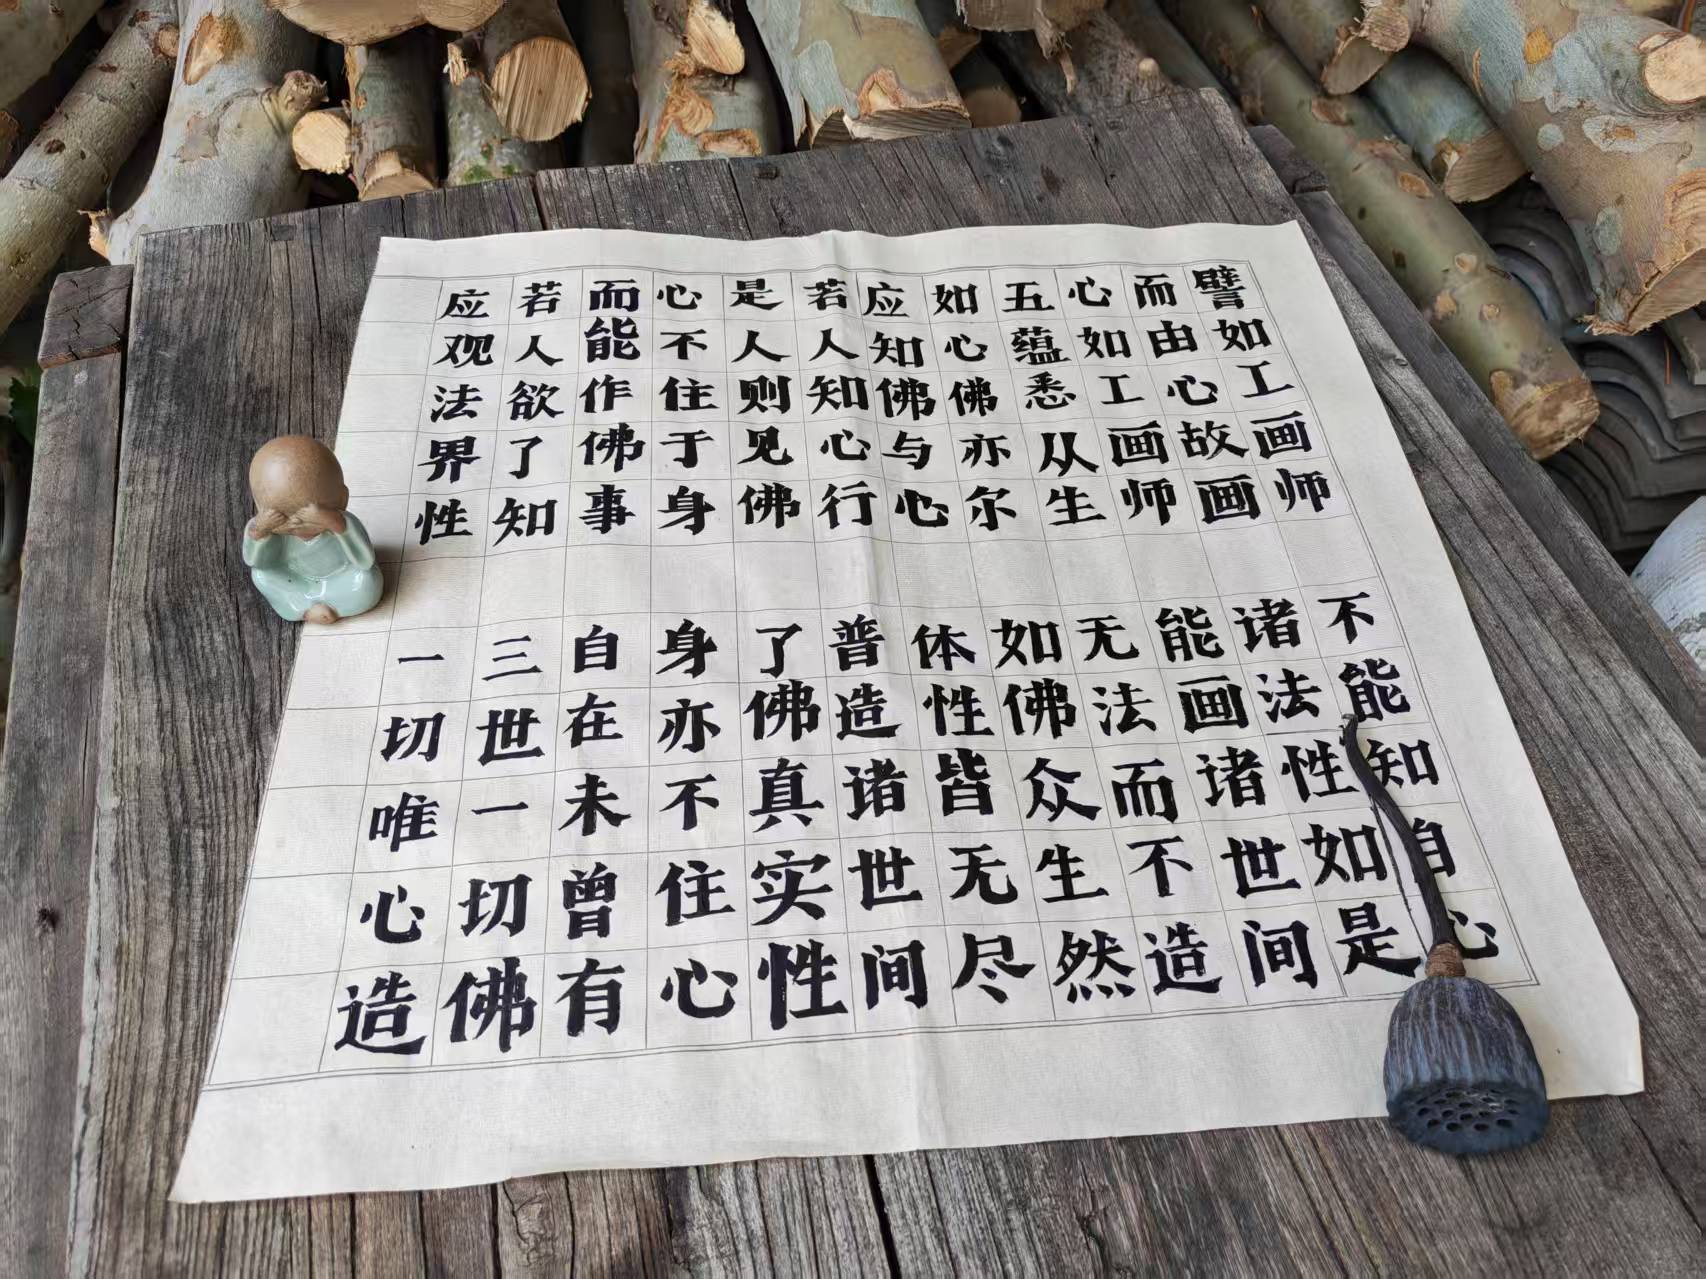 譬如工画师 不能知自心
而由心故画 诸法性如是
心如工画师 能画诸世间
五蕴悉从生 无法而不造
如心佛亦尔 如佛众生然
应知佛与心 体性皆无尽
若人知心行 普造诸世间
是人则见佛 了佛真实性
心不住于身 身亦不住心
而能作佛事 自在未曾有
若人欲了知 三世一切佛
应观法界性 一切唯心造